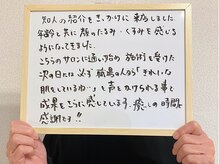 知人の紹介をきっかけに来店しました
年齢と共に顔のたるみ・くすみを感じる
ようになってきました。
こちらのサロンに通い始め施術を受けた
次の日には必ず職場の人から「きれいな
肌をしているね…」と声をかけられる事も
成果をさらに感じています。癒しの時間
感謝です!!